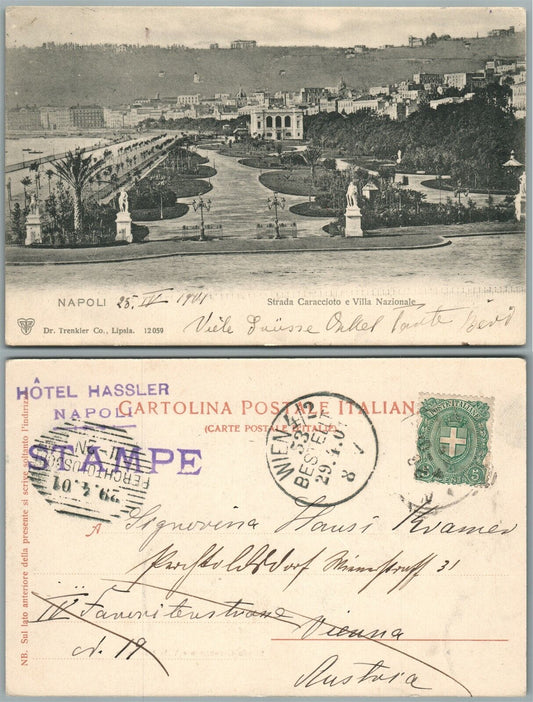 NAPOLI 25. IV 1901 Strada Caracciolo e Villa Nazionale
Dr. Trenkler Co., Lipsia. 12059
Viele Grüsse Onkel Tante
HÔTEL HASSLER
NAPOLI
CARTOLINA POSTALE ITALIAN
(CARTE POSTALE D'ITALIE)
STAMPE
PERCHTOLDSD
29.4.01
WIEN 4/2
53
BESTELLT
29.4.01
POSTE ITALIANE
A Signorina Hansi Kramer
Perchtoldsdorf Wienerstraße 31
IV Favoritenstrasse Vienna
19
Austria
NB. Sul lato anteriore della presente si scrive soltanto l'indirizzo